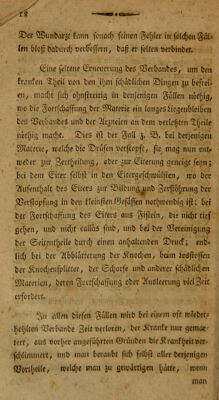 18
Der Wundarzt kann sonach seinen Fehler in solchen Fäl-
len bloß dadurch verbessern, daß er selten verbindet.
Eine seltene Erneuerung des Verbandes, um den
kranken Theil von den ihm schädlichen Dingen zu befrei-
en, macht sich ohnstreitig in denjenigen Fällen nöthig,
wo die Fortschaffung der Materie ein langes Liegenbleiben
des Verbandes und der Arzneien an dem verletzten Theile
nöthig mache. Dies ist der Fall z. B. bei derjenigen
Materie, welche die Drüsen verstopft, sie mag nun ent-
weder zur Zertheilung, oder zur Eiterung geneigt seyn;
bei dem Eiter selbst in den Eitergeschwülsten, wo der
Aufenthalt des Eiters zur Bildung und Zerstöhrung der
Verstopfung in den kleinsten Gefässen nothwendig ist; bei
der Fortschaffung des Eiters aus Fisteln, die nicht tief
gehen, und nicht callös sind, und bei der Vereinigung
der Seitentheile durch einen anhaltenden Druck; end-
lich bei der Abblätterung der Knochen, beim losstossen
der Knochensplitter, der Schorfe und anderer schädlichen
Materien, deren Fortschaffung oder Ausleerung viel Zeit
erfordert.
In allen diesen Fällen wird bei einem oft wieder-
hohlten Verbande Zeit verloren, der Kranke nur gemar-
tert, aus vorher angeführten Gründen die Krankheit ver-
schlimmert, und man beraubt sich selbst aller derjenigen
Vortheile, welche man zu gewärtigen hätte, wenn
man